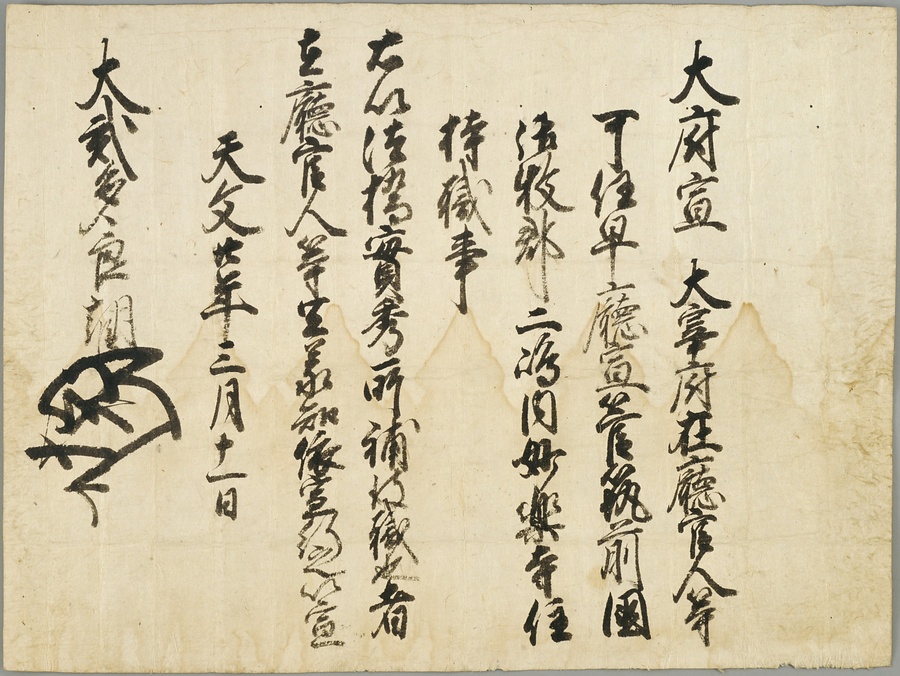 大府宣　大宰府在廳官人等
可任早廳宣管筑前國
法牧郡二嶋内妙樂寺住
持職事
右以法橋實秀所補彼職也者
在廳官人等宜承知依宣用之以宣
天文廿年三月十一日
大貳多々良朝臣